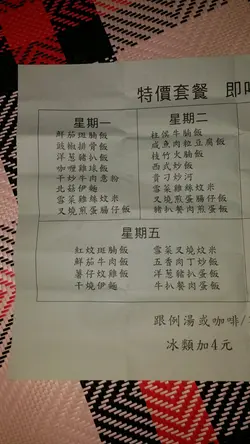 特價套餐 即
星期一
鮮茄斑腩飯
豉椒排骨飯
洋葱豬扒飯
咖喱雞球飯
干炒牛肉意粉
北菇伊麵
雪菜雞絲炆米
叉燒煎蛋腸仔飯
星期二
柱侯牛腩飯
咸魚肉粒豆腐飯
枝竹火腩飯
西式炒飯
貴刁炒河
雪菜雞絲炆米
叉燒煎蛋腸仔飯
豬扒餐肉煎蛋飯
星期五
紅炆斑腩飯
鮮茄牛肉飯
薯仔炆雞飯
干燒伊麵
雪菜叉燒炆米
五香肉丁炒飯
洋葱豬扒蛋飯
牛扒餐肉蛋飯
跟例湯或咖啡/
冰類加4元